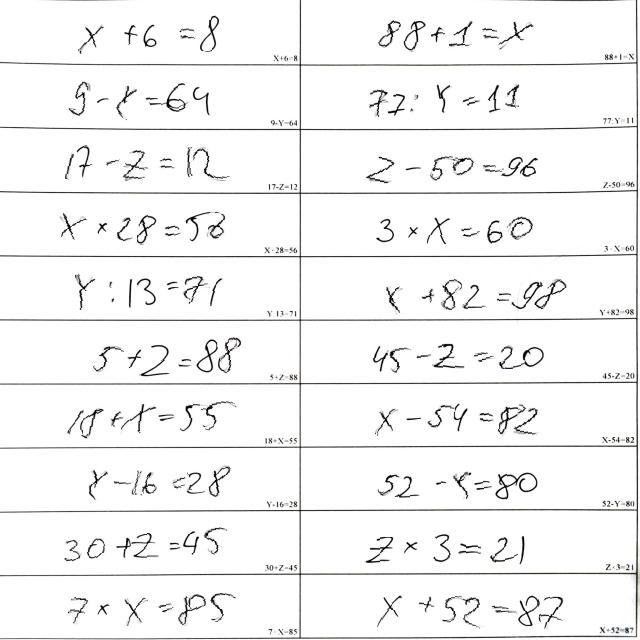 X + 6 = 8
X+6=8
88 + 1 = X
88+1=X
9 - Y = 64
9-Y=64
77 : Y = 11
77:Y=11
17 - Z = 12
17-Z=12
Z - 50 = 96
Z-50=96
X × 28 = 56
X · 28=56
3 × X = 60
3 · X=60
Y : 13 = 71
Y 13=71
Y + 82 = 98
Y+82=98
5 + Z = 88
5+Z=88
45 - Z = 20
45-Z=20
18 + X = 55
18+X=55
X - 54 = 82
X-54=82
Y - 16 = 28
Y-16=28
52 - Y = 80
52-Y=80
30 + Z = 45
30+Z=45
Z × 3 = 21
Z · 3=21
7 × X = 85
7 · X=85
X + 52 = 87
X+52=87